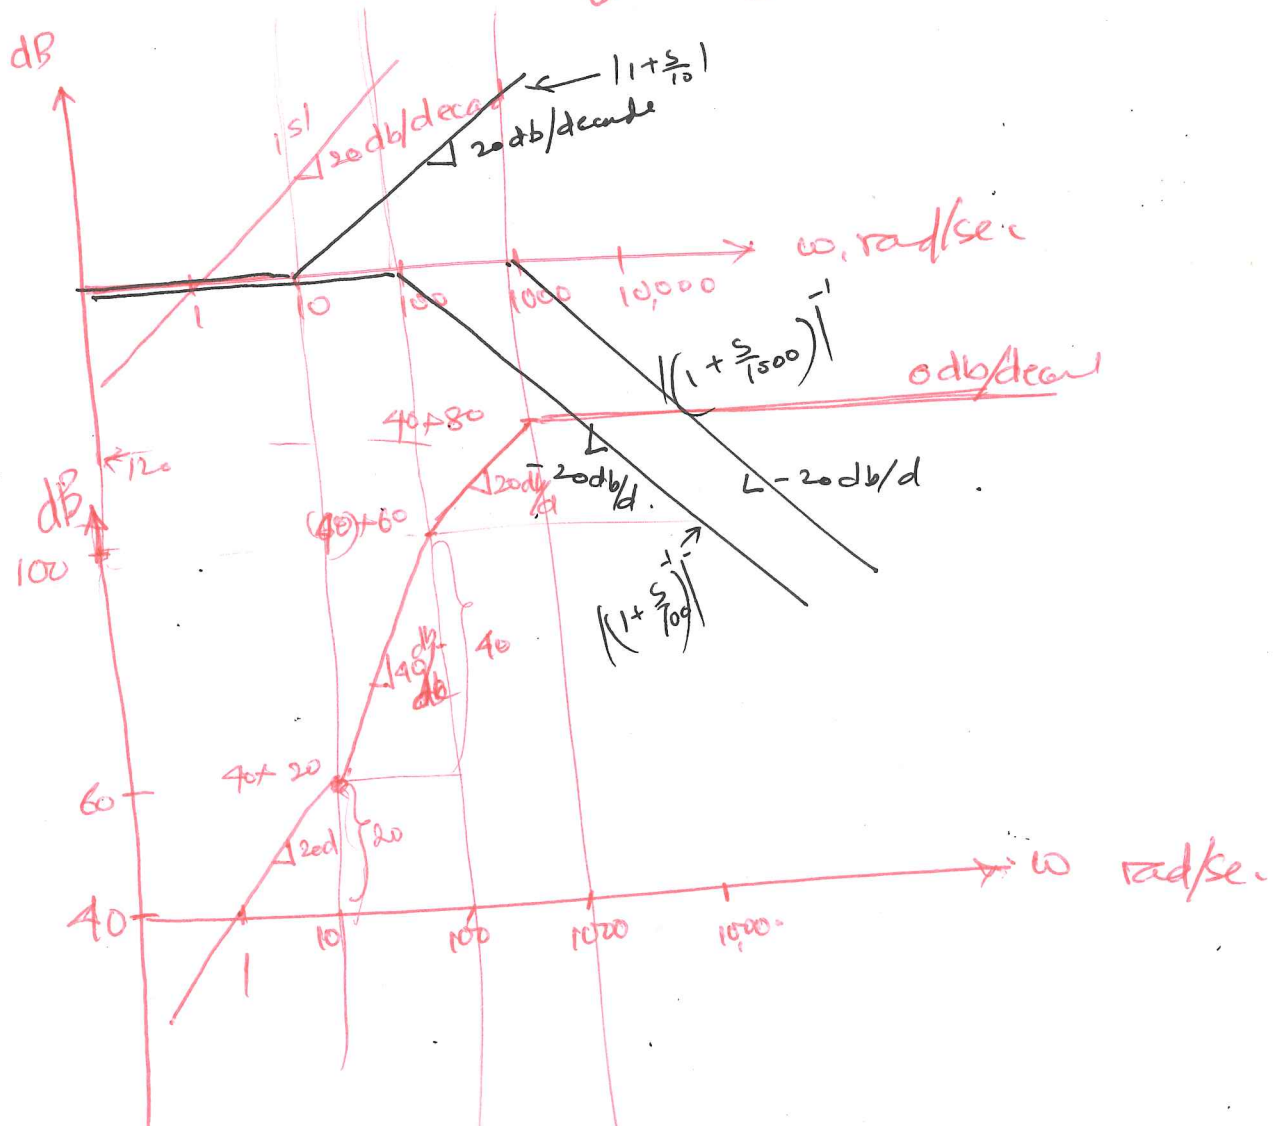 dB
|1+s/10|
|s|
20db/decad
20db/decade
ω, rad/sec
1
10
100
1000
10,000
|(1+s/1500)^-1|
0db/decad
40+80
120
dB
20db/d
-20db/d.
-20db/d
(40)+60
100
|(1+s/100)^-1|
40
40+20
60
20d
20
ω rad/se.
40
1
10
100
1000